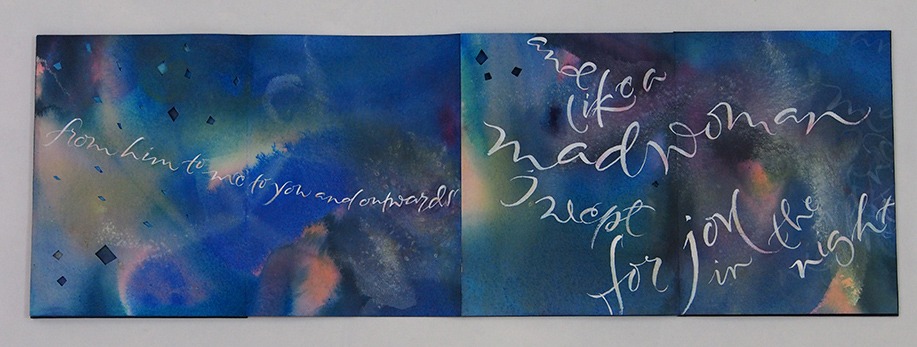 from him to me to you and outwards
and
like a
madwoman
I wept
for joy in the night